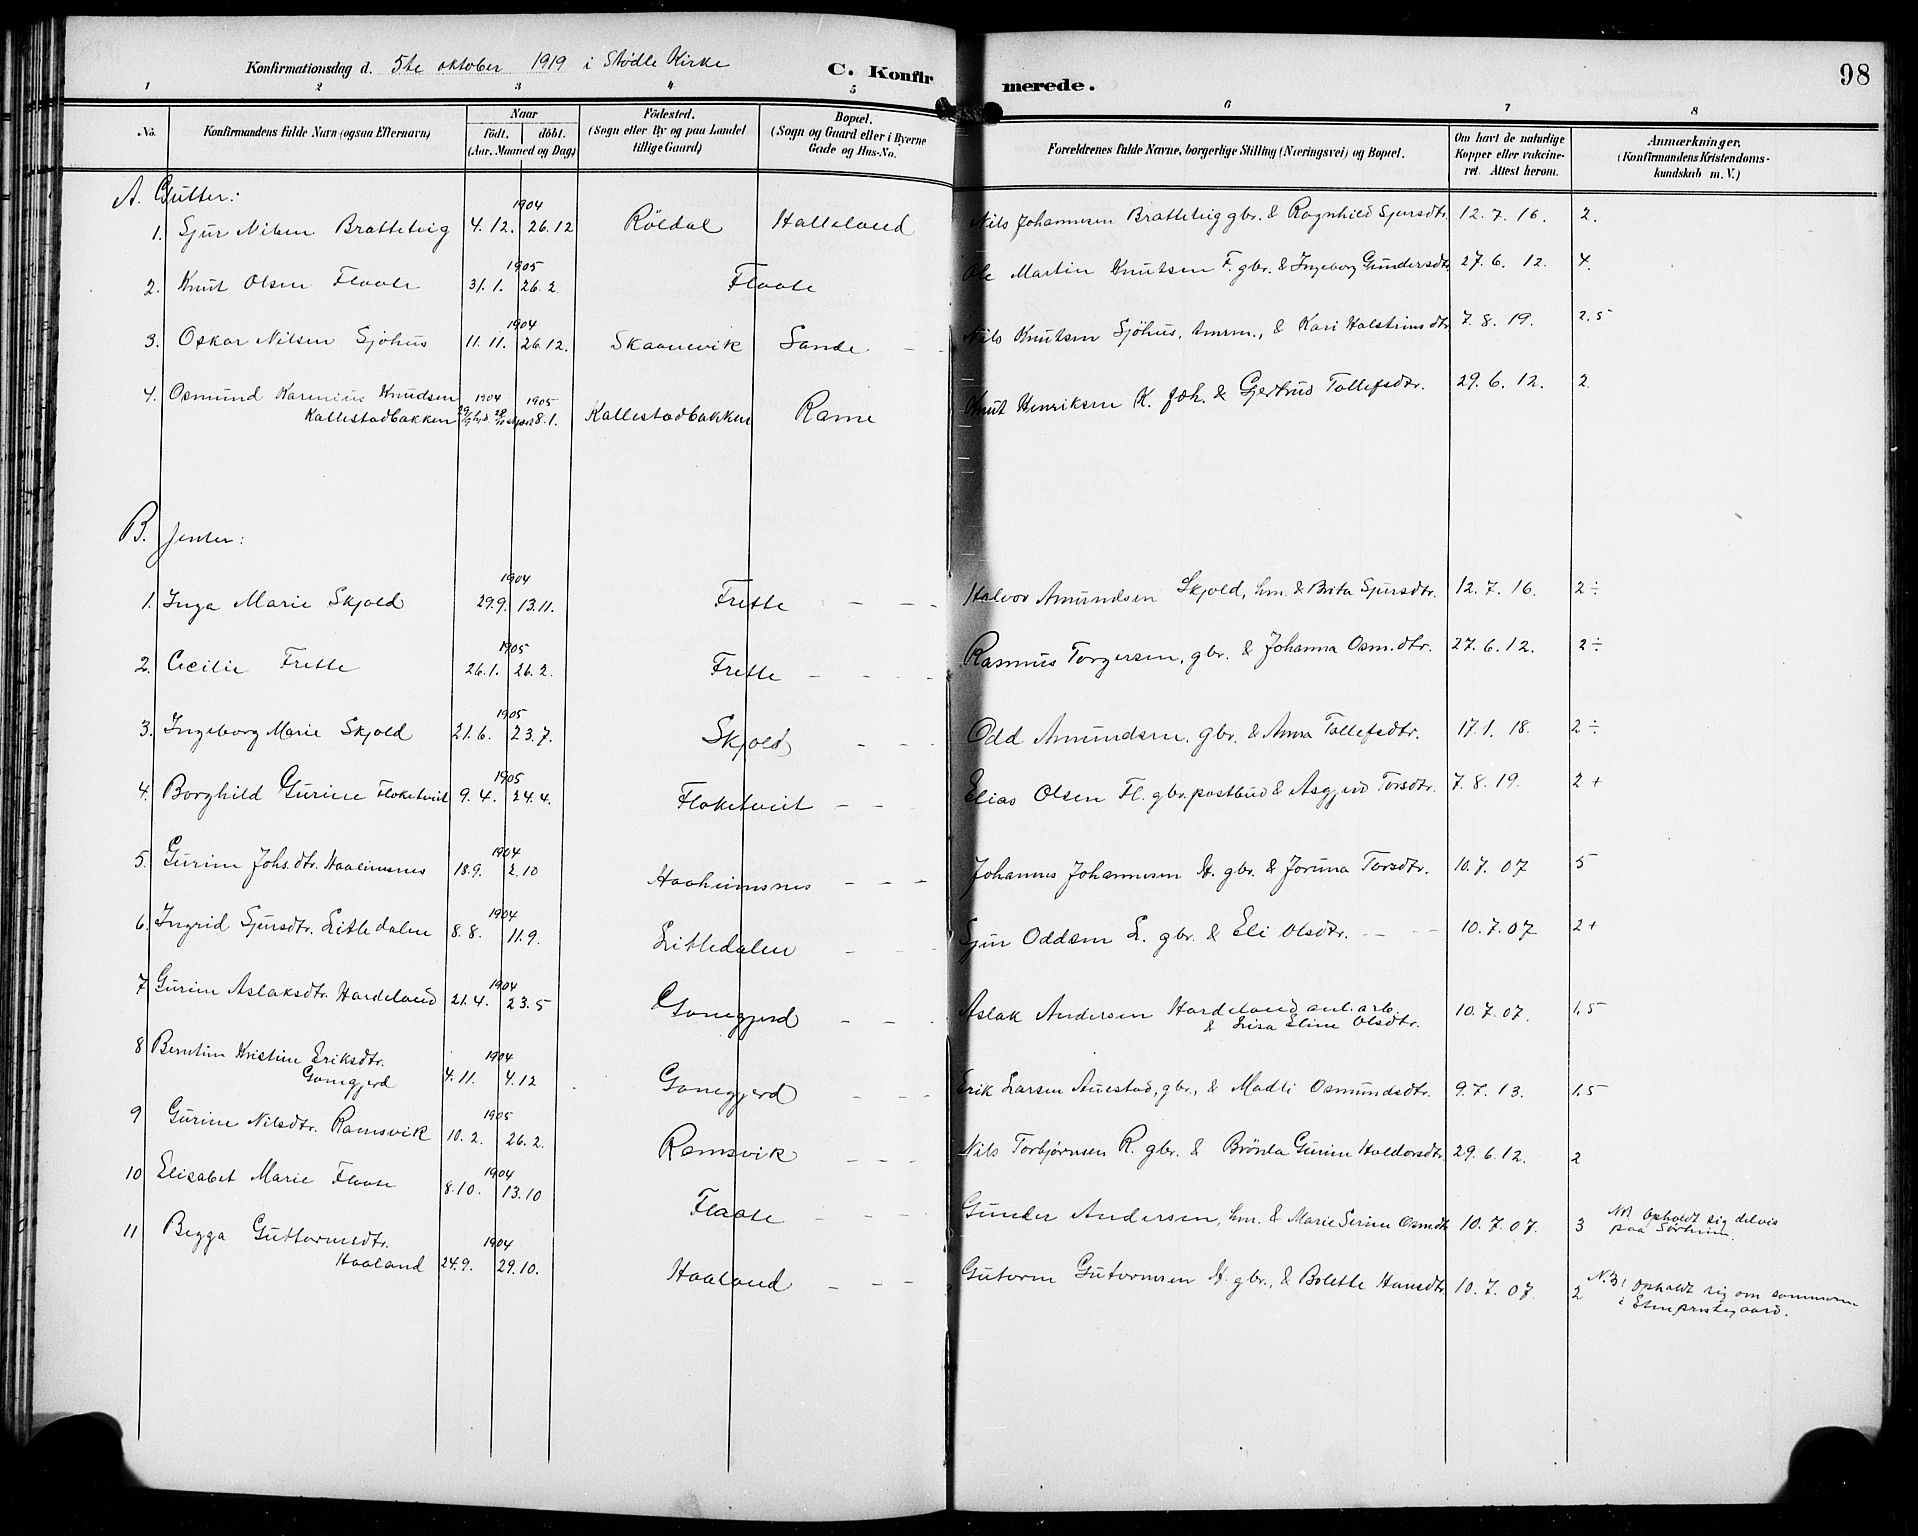 Konfirmationsdag d. 5te oktober 1919 i Stødle Kirke C. Konfirmerede. 98
1 2 3 4 5 6 7 8
No. Konfirmandens fulde Navn (ogsaa Efternavn) Naar født. døbt. (Aar, Maaned og Dag) Fødested. (Sogn eller By og paa Landet tillige Gaard) Bopæl. (Sogn og Gaard eller i Byerne Gade og Hus-No. Forældrenes fulde Navne, borgerlige Stilling (Næringsvei) og Bopæl. Om havt de naturlige Kopper eller vakcineret. Attest herom. Anmærkninger. (Konfirmandens Kristendomskundskab m. V.)
A. Gutter:
1904
1. Sjur Nilsen Bratteteig 4.12. 26.12 Röldal Halleland Nils Johannesen Bratteteig gbr. & Ragnhild Sjursdtr. 12.7.16. 2.
1905
2. Knut Olsen Flaate 31.1. 26.2. Flaate Ole Martin Knutsen F. gbr. & Ingeborg Gundersdtr. 27.6.12. 4.
1904
3. Oskar Nilsen Sjöhus 11.11. 26.12. Skaanevik Sande Nils Knutsen Sjöhus, tmrm., & Kari Halstensdtr 7.8.19. 2.5
4. Osmund Karenius Knudsen 1904 1905
Kallestadbakken 8.1. Kallestadbakken Rame Knut Henriksen K. & Gjertrud Tollefsdtr. 29.6.12. 2
B. Jenter:
1904
1. Inga Marie Skjold 29.9. 13.11. Frette Halvor Amundsen Skjold, hm. & Brita Sjursdtr. 12.7.16. 2÷
1905
2. Cecilie Frette 26.1. 26.2. Frette Rasmus Torgersen, gbr. & Johanna Osm.dtr. 27.6.12. 2÷
1905
3. Ingeborg Marie Skjold 21.6. 23.7. Skjold Odd Amundsen, gbr. & Anna Tollefsdtr. 17.1.18. 2÷
1905
4. Borghild Gurine Floketveit 9.4. 24.4. Floketveit Elias Olsen Fl. gbr. postbud & Asgjerd Torsdtr. 7.8.19. 2+
1904
5. Gurine Johs.dtr. Haaheimsnes 18.9. 2.10 Haaheimsnes Johannes Johannesen H. gbr. & Joruna Torsdtr. 10.7.07 5
1904
6. Ingrid Sjursdtr. Litledalen 8.8. 11.9. Litledalen Sjur Oddsen L. gbr. & Eli Olsdtr. 10.7.07 2+
1904
7 Gurine Aslaksdtr. Hardeland 21.4. 23.5 Gonegjerd Aslak Andersen Hardeland anl. arb. & Lisa Eline Olsdtr. 10.7.07. 1,5
8 Berntine Kristine Eriksdtr. 1904
Gonegjerd 4.11. 4.12 Gonegjerd Erik Larsen Auestad, gbr., & Madli Osmundsdtr. 9.7.13. 1,5
1905
9 Gurine Nilsdtr. Ramsvik 10.2. 26.2. Ramsvik Nils Torbjørnsen R. gbr. & Brönla Gurine Haldorsdtr. 29.6.12. 2
1904
10 Elisabet Marie Flaate 8.10. 13.10 Flaate Gunder Andersen, hm. & Marie Serine Osmdtr 10.7.07. 3 NB! Opholdt sig delvis paa Sørheim.
11 Begga Guttormsdtr. 1904
Haaland 24.9. 29.10. Haaland Gutorm Gutormsen H. gbr., & Bolette Hansdtr. 10.7.07. 2 N.B! Opholdt sig om sommeren i Etne prestegaard.